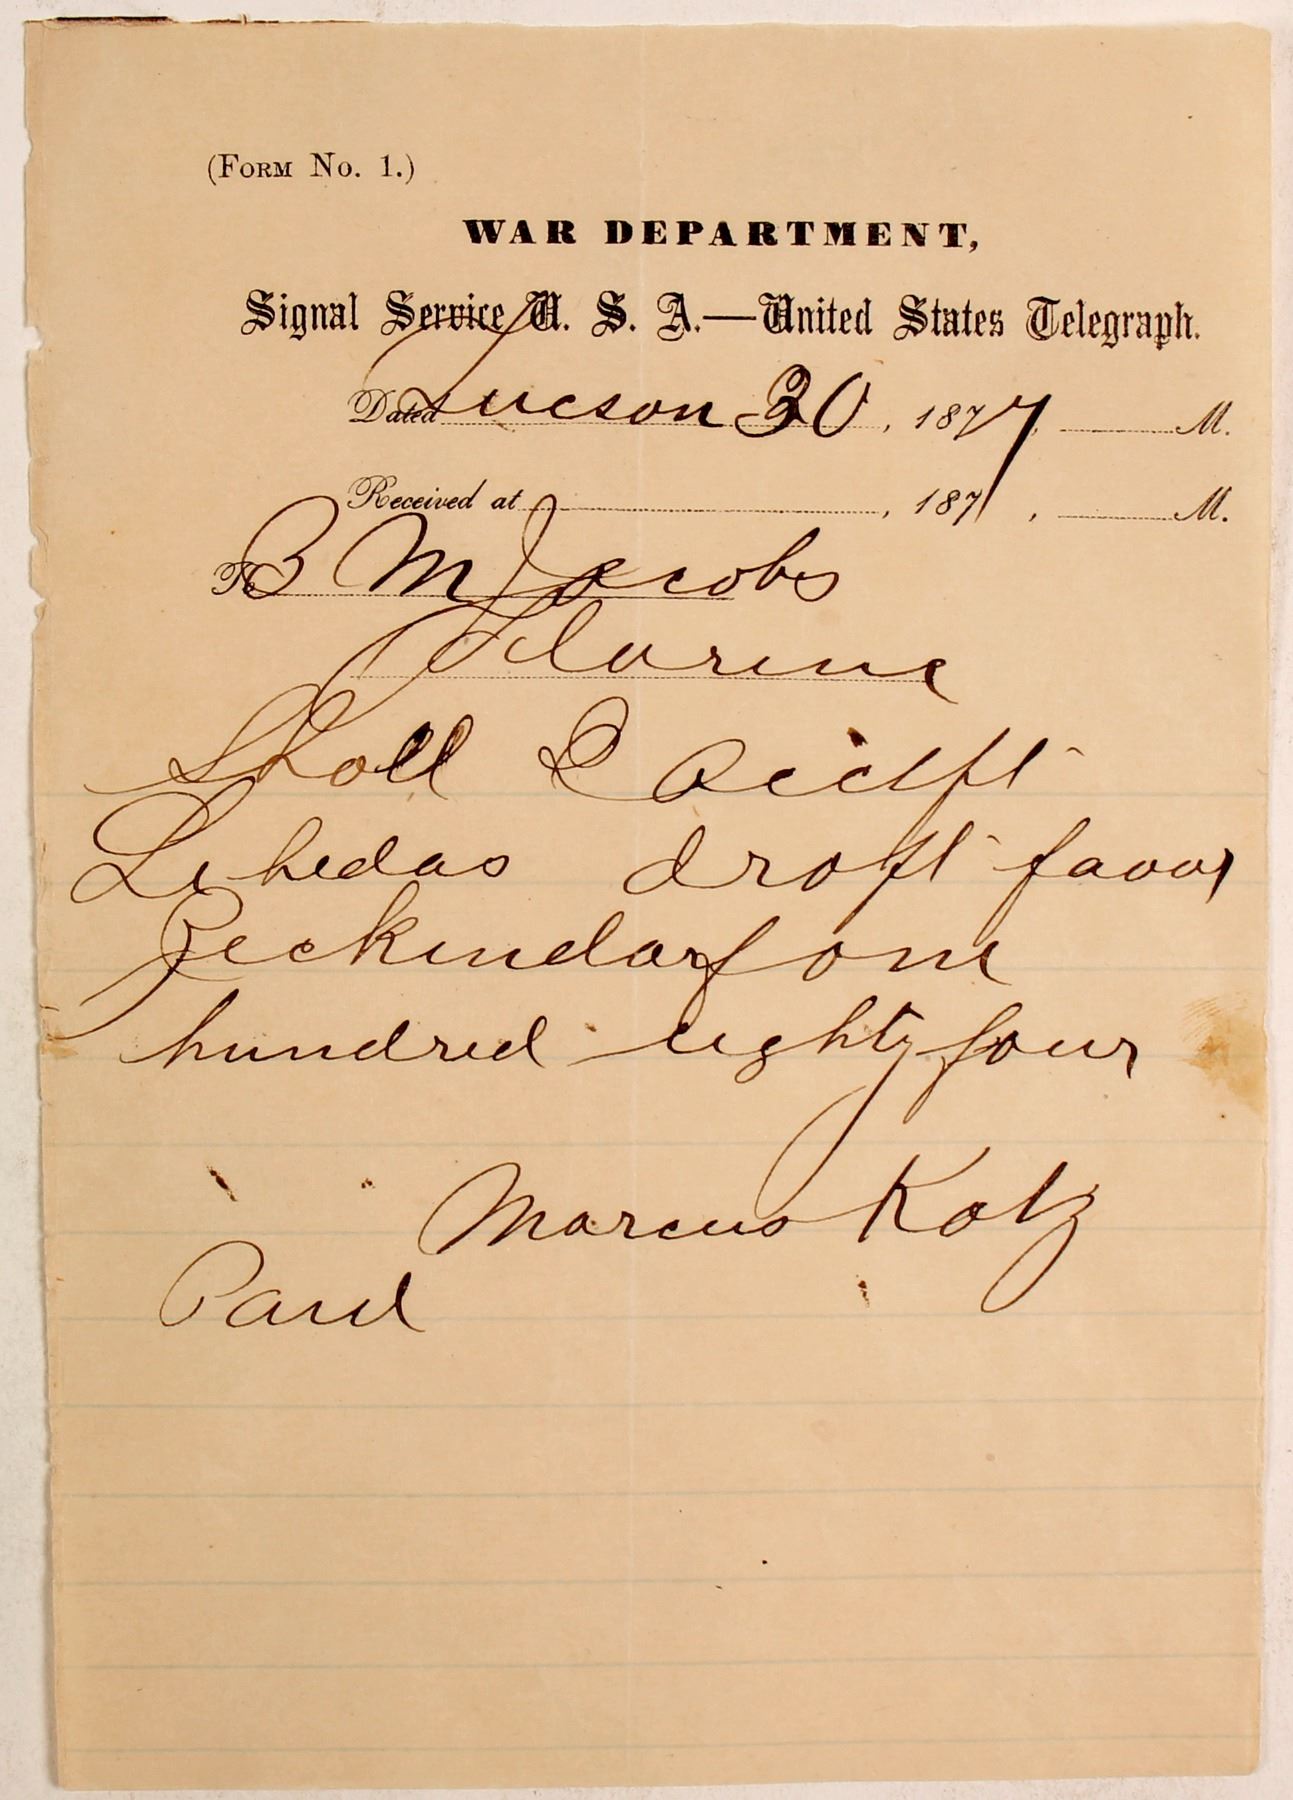 (FORM No. 1.)
WAR DEPARTMENT,
Signal Service U. S. A.—United States Telegraph.
Dated Tucson 30, 1877, M.
Received at , 187 , M.
To B M Jacobs
Florence
Shall I
draft favor
Zeckendorf one
hundred eighty four
Marcus Katz
Paid